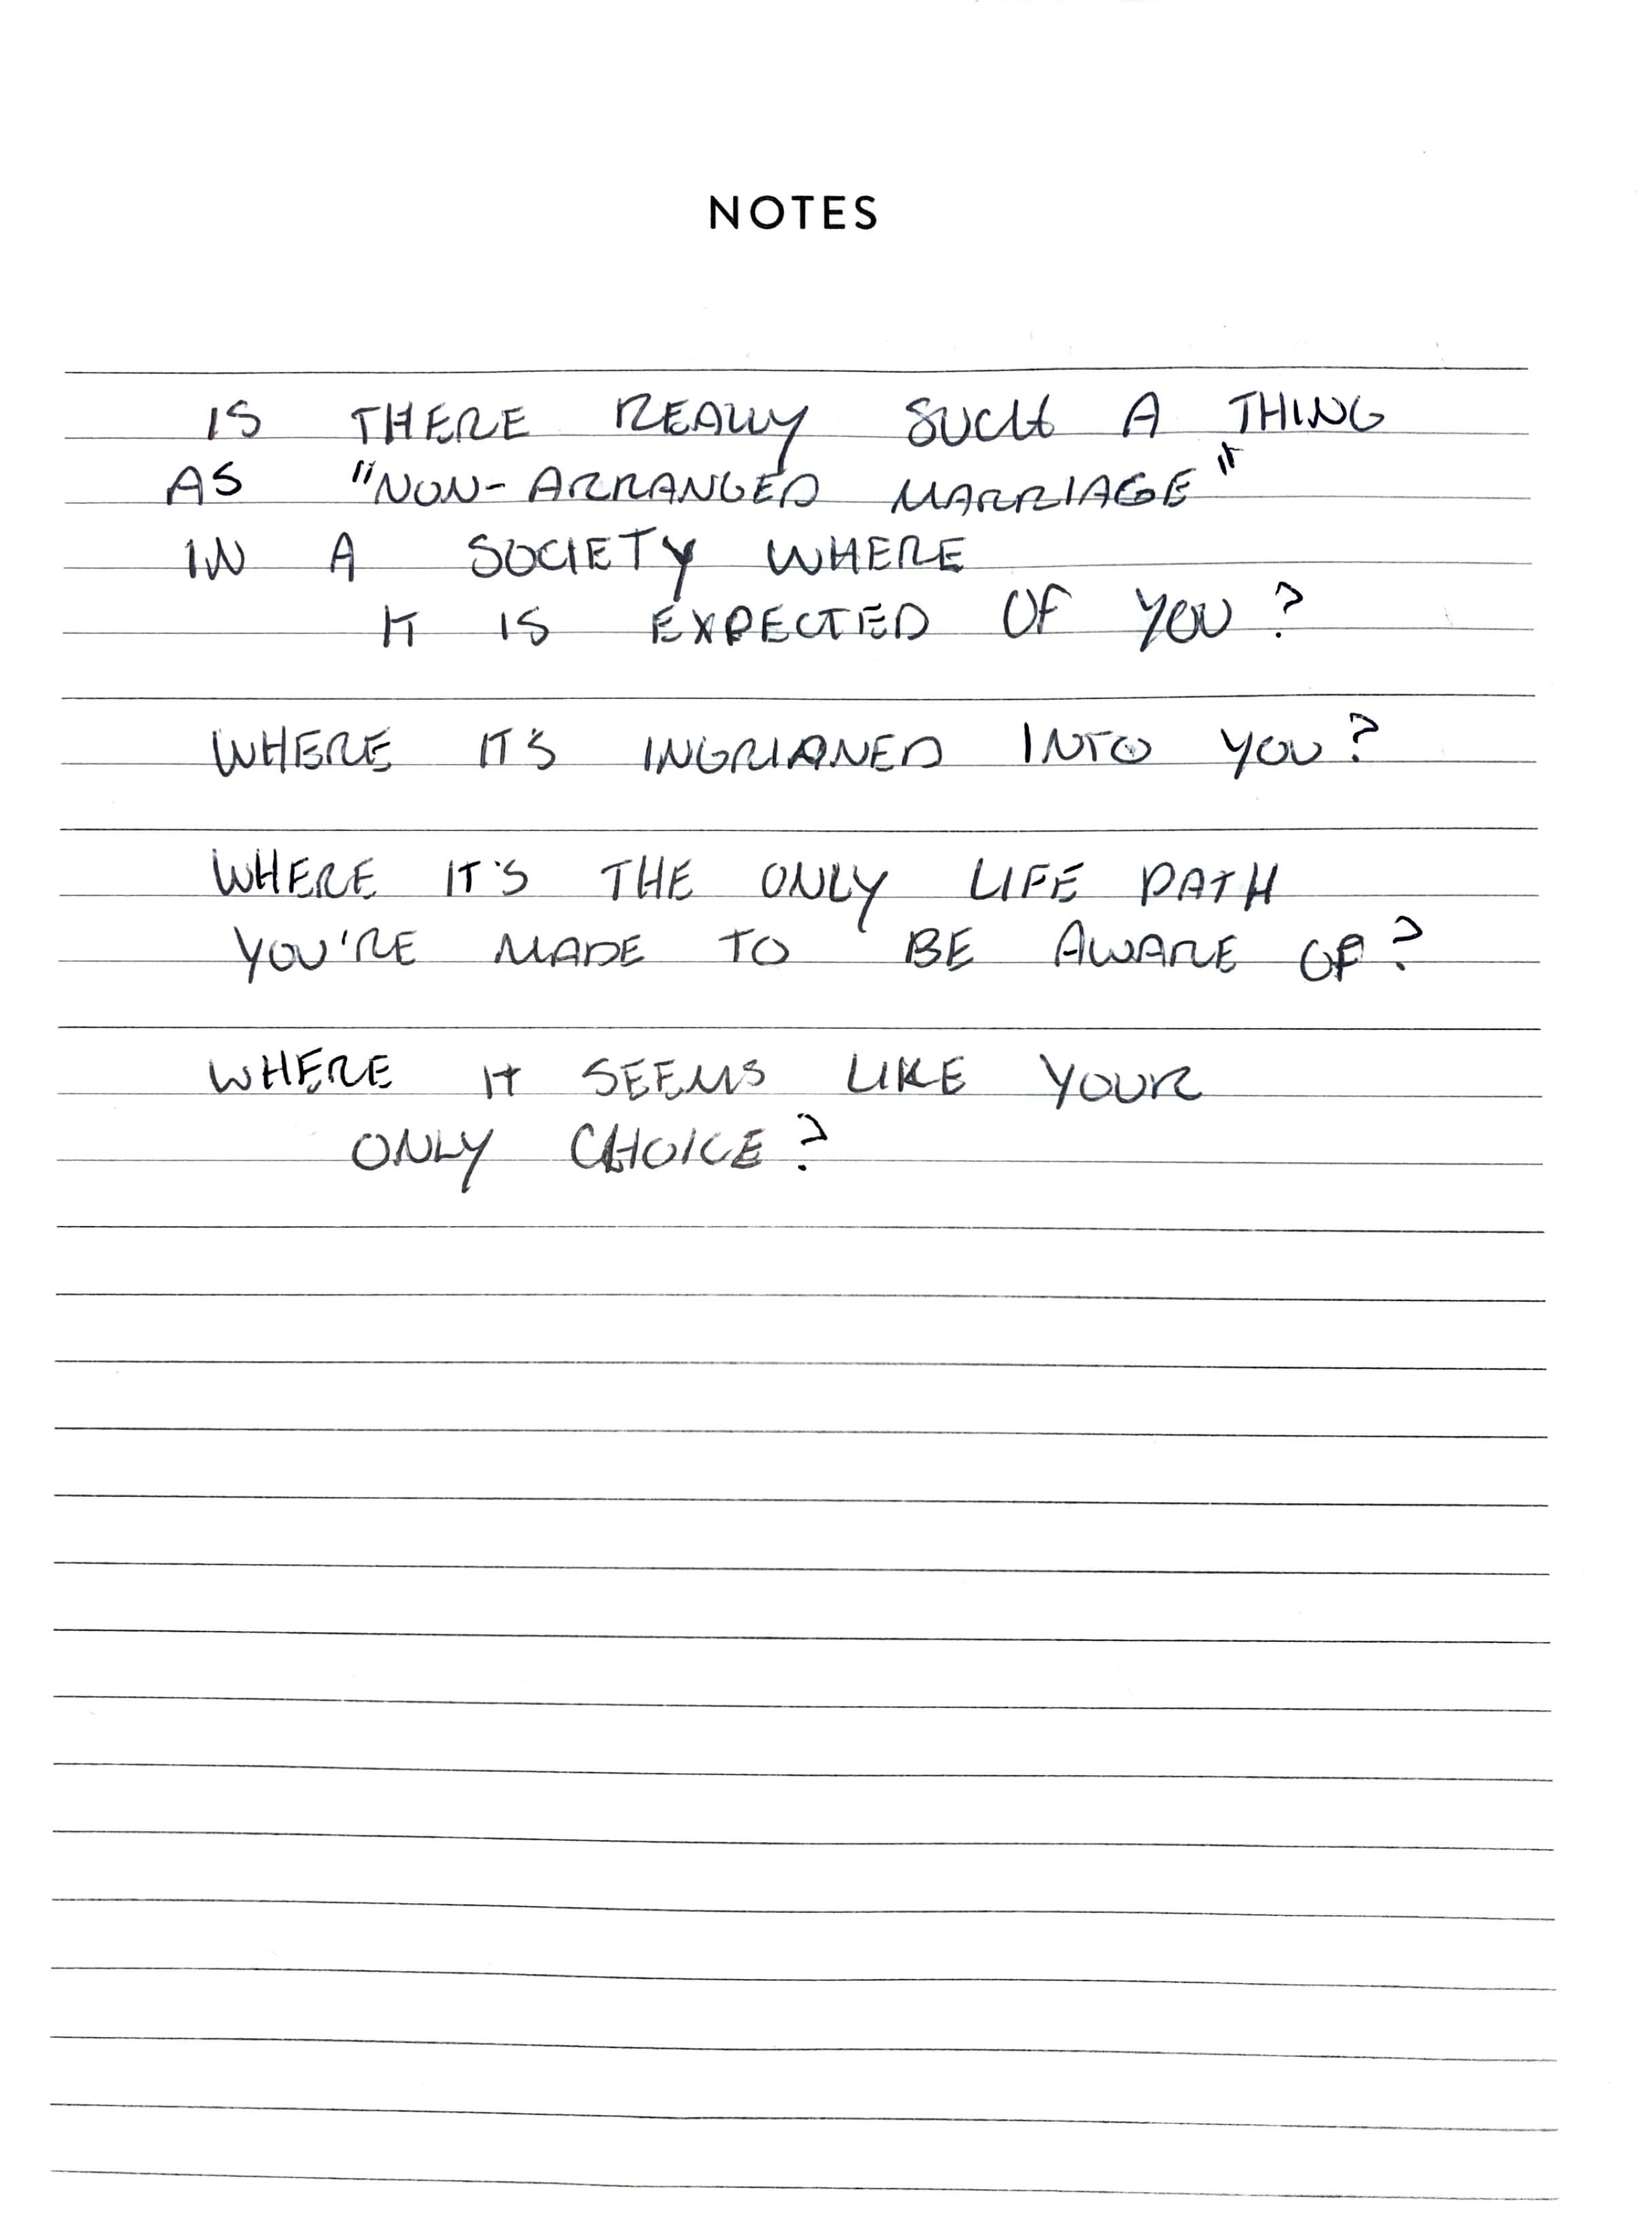 NOTES
IS THERE REALLY SUCH A THING
AS "NON-ARRANGED MARRIAGE"
IN A SOCIETY WHERE
IT IS EXPECTED OF YOU?
WHERE IT'S INGRIANED INTO YOU?
WHERE IT'S THE ONLY LIFE PATH
YOU'RE MADE TO BE AWARE OF?
WHERE IT SEEMS LIKE YOUR
ONLY CHOICE?